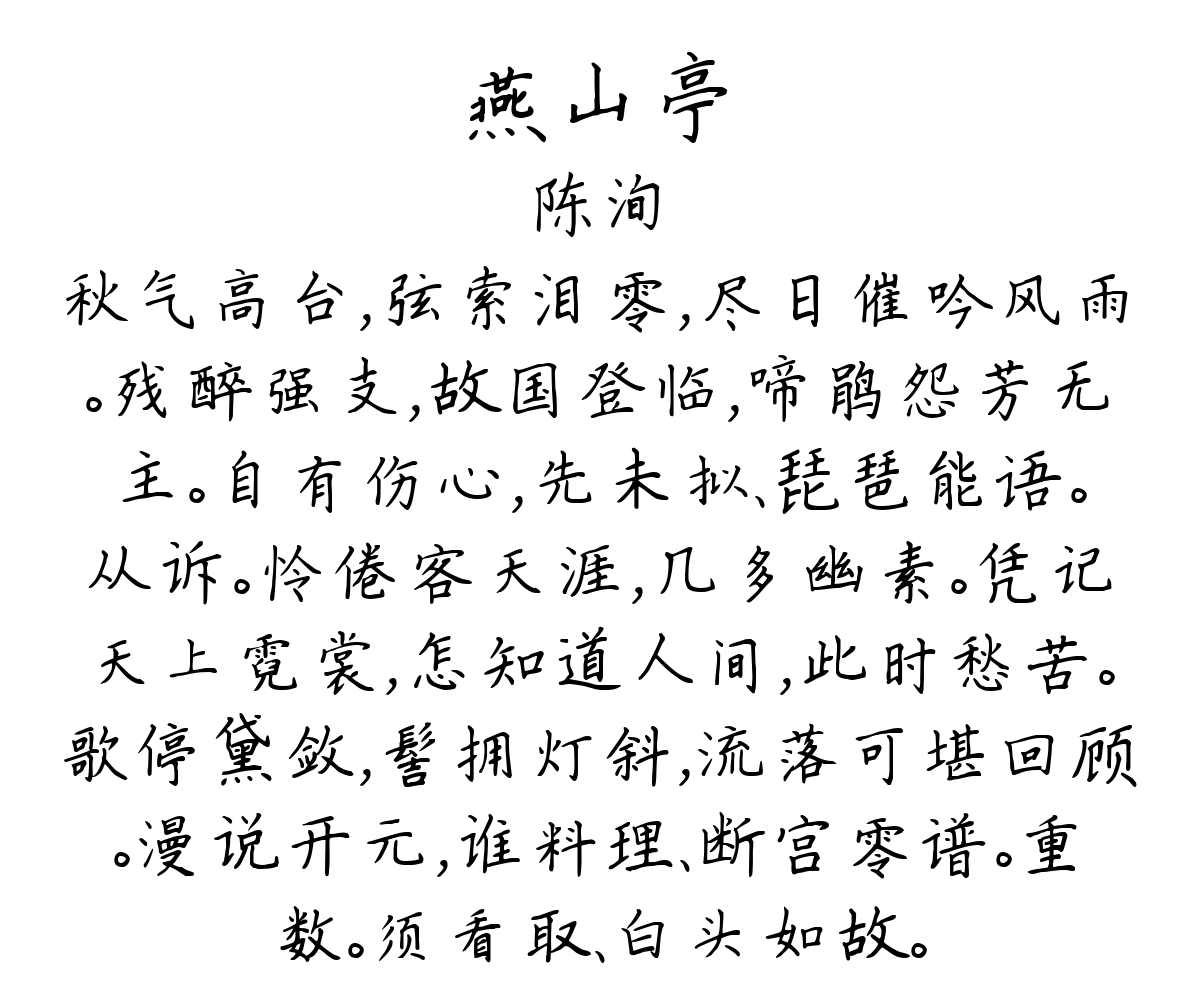 燕山亭
陈洵
秋气高台,弦索泪零,尽日催吟风雨
。残醉强支,故国登临,啼鹃怨芳无
主。自有伤心,先未拟、琵琶能语。
从诉。怜倦客天涯,几多幽素。凭记
天上霓裳,怎知道人间,此时愁苦。
歌停黛敛,髻拥灯斜,流落可堪回顾
。漫说开元,谁料理、断宫零谱。重
数。须看取、白头如故。